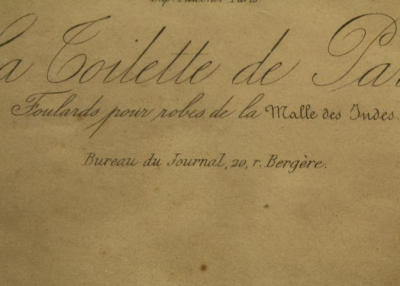 La Toilette de Par
Foulards pour robes de la Malle des Indes.
Bureau du Journal, 20, r. Bergère.